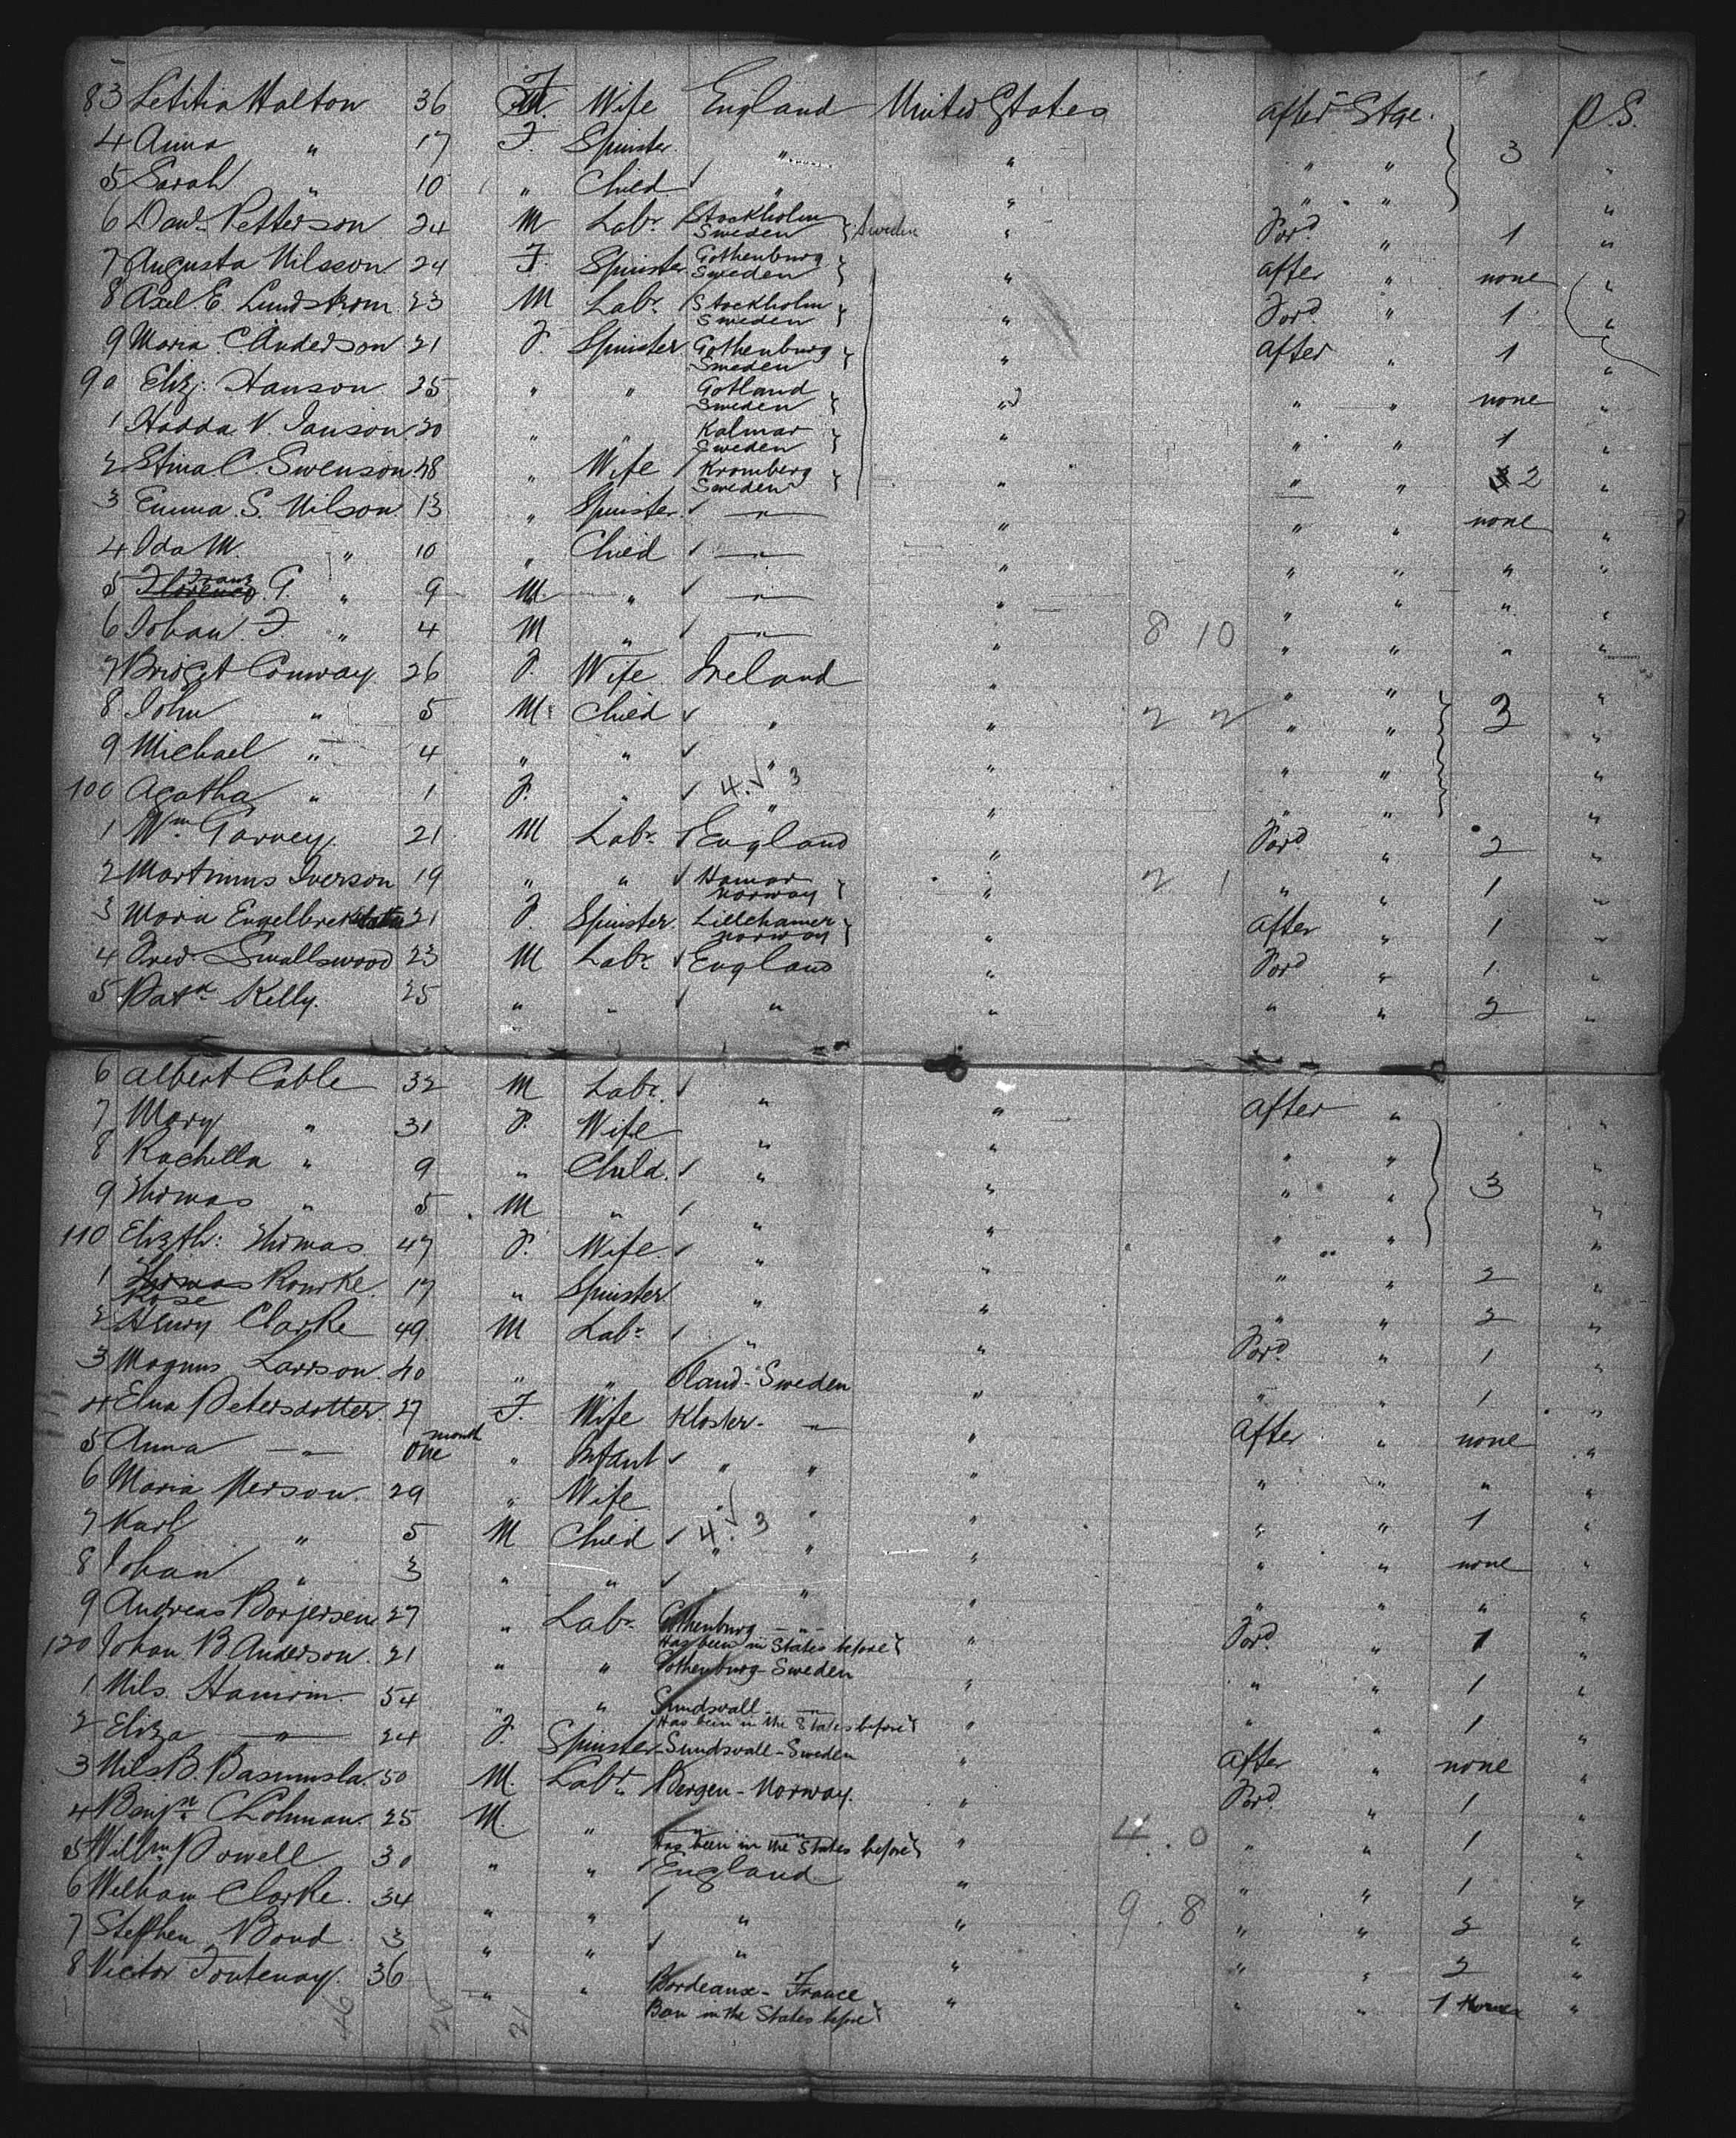 83 Letitia Halton 36 F. Wife England United States after Stge. P.S.
4 Anna " 17 F. Spinster " " " " 3 "
5 Sarah " 10 " Child " " " " "
6 Dand Petterson 24 M Labr Stockholm Sweden Sweden " Ford " 1 "
7 Augusta Nilsson 24 F. Spinster Gothenburg Sweden " after " none "
8 Axel E. Lundstrom 23 M Labr Stockholm Sweden " Ford " 1 "
9 Maria C. Anderson 21 F. Spinster Gothenburg Sweden " after " 1 "
90 Eliz. Hanson 25 " " Gotland Sweden " " " none "
1 Hadda V. Janson 30 " " Kalmar Sweden " " " 1 "
2 Stina C Swenson 48 " Wife Kromberg Sweden " " " 2 "
3 Emma S. Nilson 13 " Spinster " " " " none "
4 Ida M. " 10 " Child " " " " " "
5 Franz G. " 9 M " " " " " " "
6 Johan F. " 4 M " " " 8 10 " " " "
7 Bridget Conway 26 F. Wife Ireland " " " "
8 John " 5 M Child " " 2 2 " " 3 "
9 Michael " 4 " " " " " " "
100 Agatha " 1 F. " 4. 3 " " " " "
1 Wm Garvey 21 M Labr England " Ford " 2 "
2 Martinus Iverson 19 " " Hamar Norway " 2 1 " " 1 "
3 Maria 21 F. Spinster Lillehamer Norway " after " 1 "
4 Fred. Smallswood 23 M Labr England " Ford " 1 "
5 Patk Kelly 25 " " " " " " 2 "
6 Albert Cable 32 M Labr. " " after " "
7 Mary " 31 F. Wife " " " " "
8 Rachella " 9 " Child. " " " " 3 "
9 Thomas " 5 M " " " " " "
110 Elizth: Thomas 47 F. Wife " " " " 2 "
1 Thomas Rourke 17 " Spinster " " " " 2 "
Rose
2 Henry Clarke 49 M Labr " " Ford " 1 "
3 Magnus Larrson 40 " " Oland - Sweden " " " 1 "
4 Elna Petersdotter 27 F. Wife Kloster - " " After " none "
5 Anna " One month " Infant " " " " " " "
6 Maria Merson 29 " Wife " " " " " 1 "
7 Karl " 5 M Child 4. 3 " " " " " none "
8 Johan " 3 " " " " " " " " "
9 Andreas Borjersen 27 " Labr Gothenburg - " - " Ford " 1 "
Has been in States before
120 Johan B. Anderson 21 " " Gothenburg - Sweden " " " 1 "
1 Nils. Hamrin 54 " " Sundsvall - " " " " 1 "
Has been in the States before
2 Eliza " 24 F. Spinster Sundsvall - Sweden " after " none "
3 Nils B. 50 M. Labr Bergen - Norway. " Ford " 1 "
4 Benjn 25 M. " " " " 4 . 0 " " 1 "
Has been in the States before
5 Willm Powell 30 " " England " " " 1 "
6 William Clarke 34 " " " " 9 . 8 " " 2 "
7 Stephen Bond 3 " " " " " " 2 "
8 Victor Fontenay 36 " " Bordeaux - France " " " 1 "
Ben in the States before
46 21